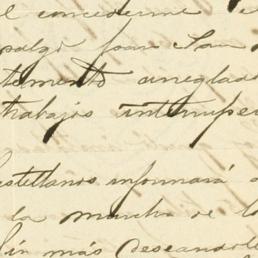 el concederme e
hidalgo Juan San
tamento arreglado
trabajos interrumpe
Castellanos informará a
la marcha de lo
Sin más deseandole